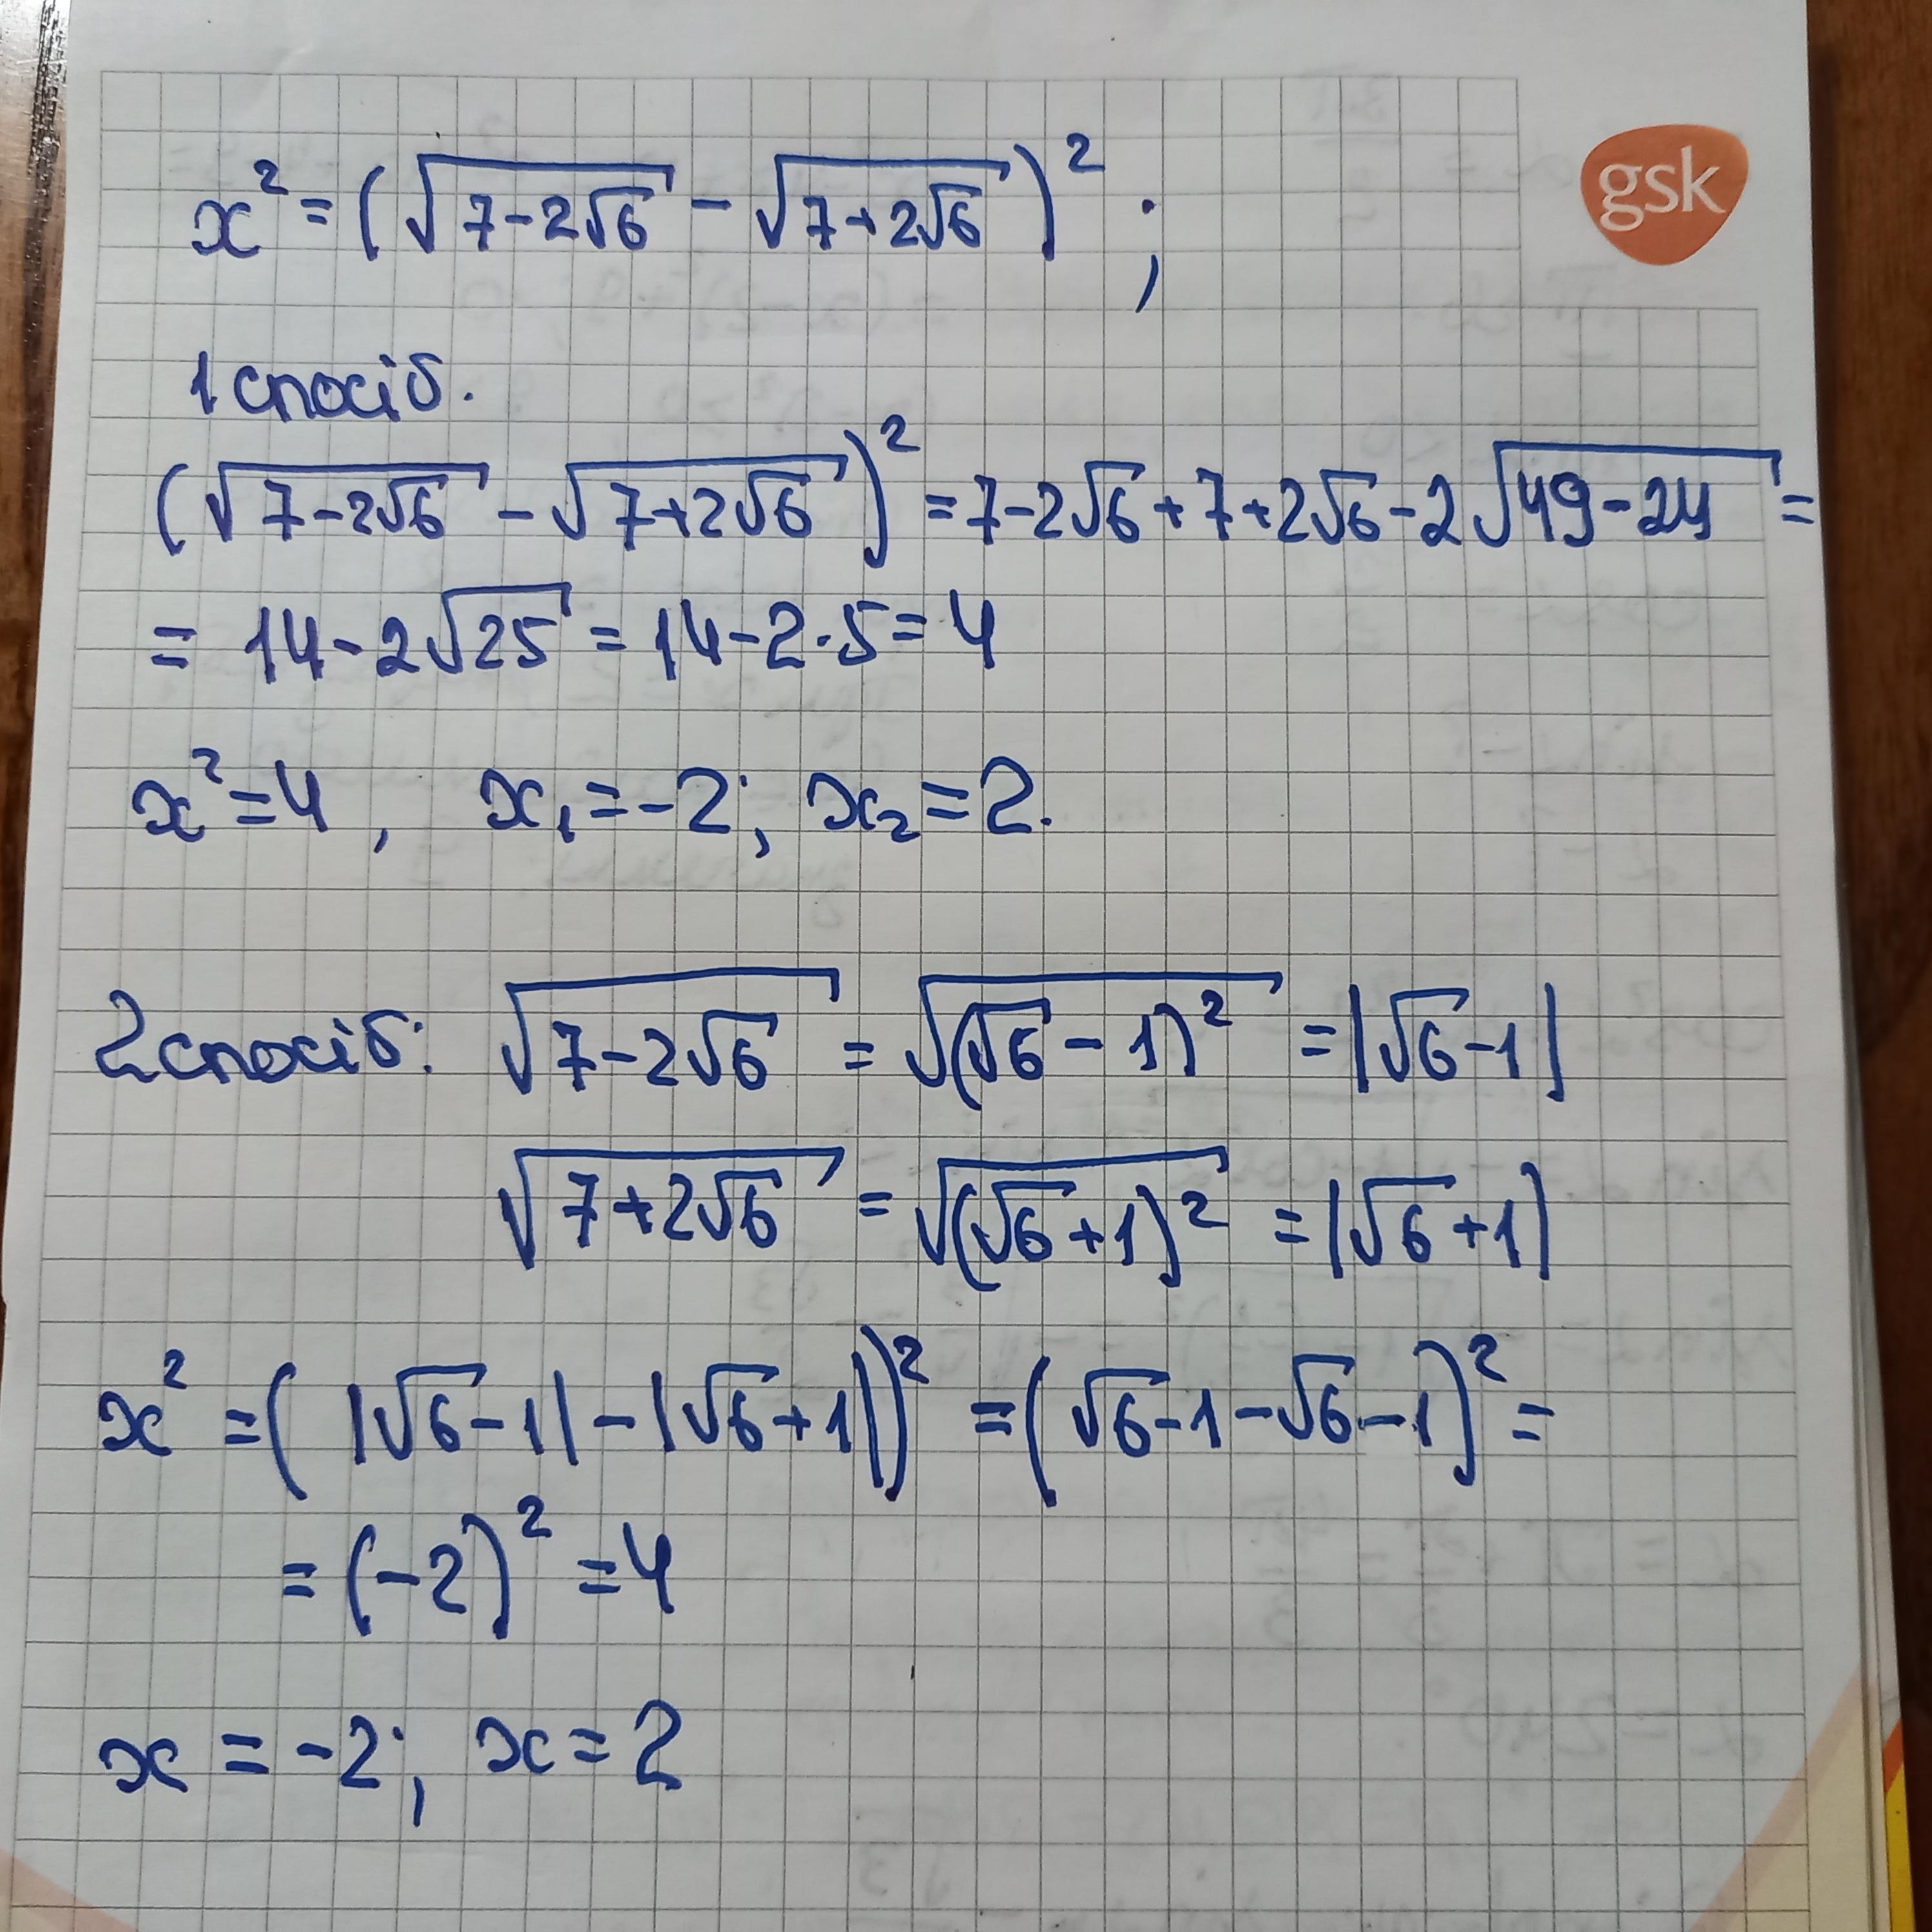 gsk
x² = (√(7-2√6) - √(7+2√6))² ;
1 спосіб.
(√(7-2√6) - √(7+2√6))² = 7-2√6+7+2√6-2√(49-24) =
= 14-2√25 = 14-2·5=4
x²=4, x₁=-2; x₂=2.
2 спосіб: √(7-2√6) = √((√6-1)²) = |√6-1|
√(7+2√6) = √((√6+1)²) = |√6+1|
x² = (|√6-1|-|√6+1|)² = (√6-1-√6-1)² =
= (-2)² = 4
x = -2; x = 2